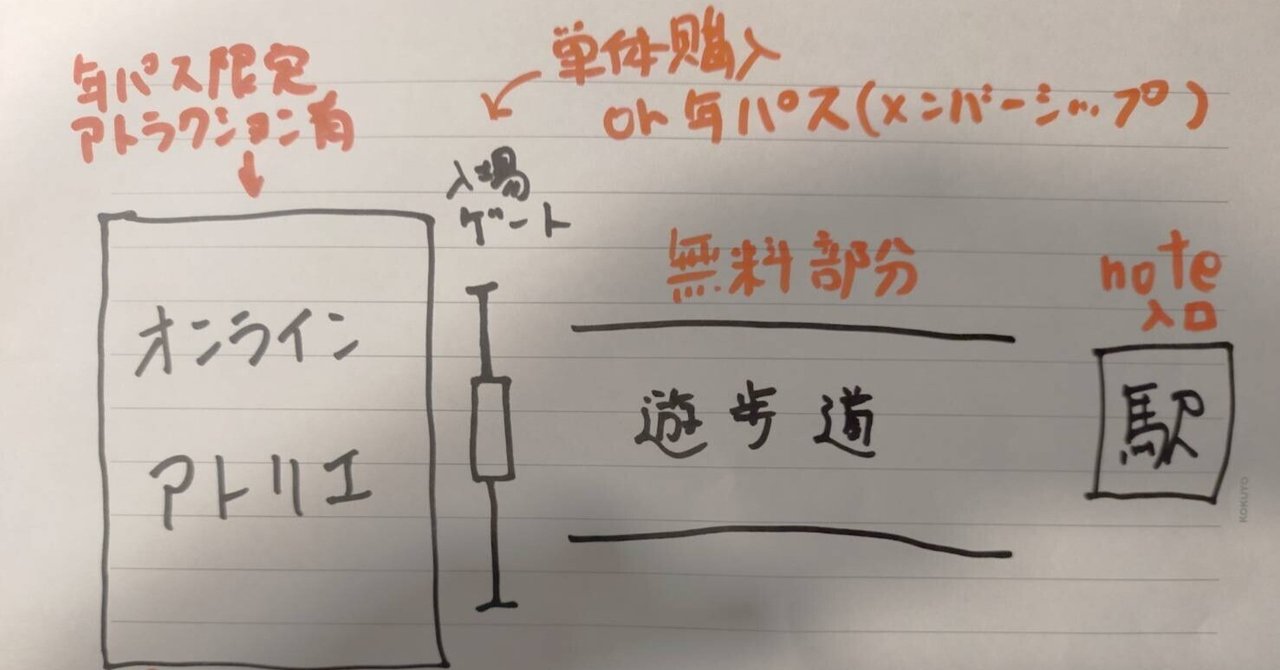 年パス限定
アトラクション有
単体購入
or 年パス(メンバーシップ)
入場
ゲート
無料部分
note
入口
オンライン
アトリエ
遊歩道
駅
KOKUYO